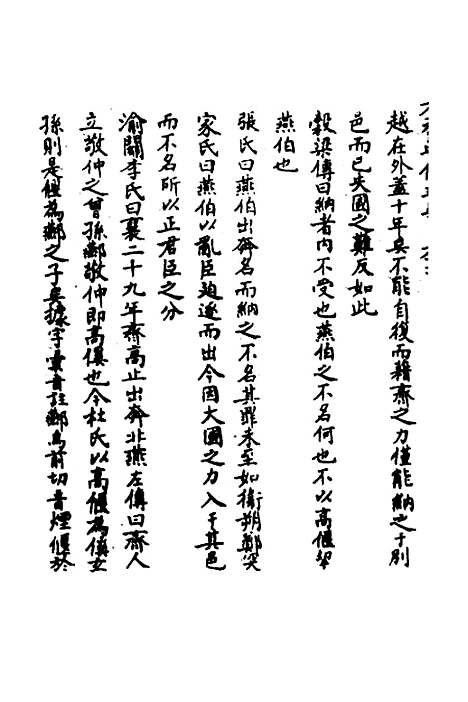 越在外蓋十年矣不能自復而藉齊之力僅能納之于別
邑而已失國之難反如此
穀梁傳曰納者内不受也燕伯之不名何也不以高偃挈
燕伯也
張氏曰燕伯出奔名而納之不名其罪未至如衛朔鄭突
家氏曰燕伯以亂臣廹逐而出今因大國之力入于其邑
而不名所以正君臣之分
渝關李氏曰襄二十九年齊高止出奔北燕左傳曰齊人
立敬仲之曾孫酀敬仲即高傒也今杜氏以高偃為傒玄
孫則是偃為酀之子矣據字彙音註酀烏前切音煙偃於